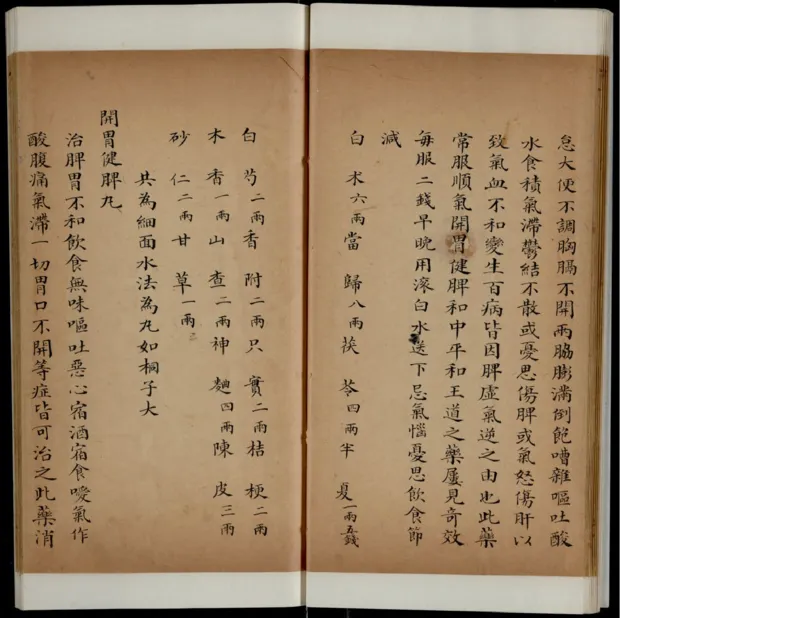 怠大便不調胸膈不開兩脇膨滿倒飽嘈雜嘔吐酸
水食積氣滯鬱結不散或憂思傷脾或氣怒傷肝以
致氣血不和變生百病皆因脾虛氣逆之由也此藥
常服順氣開胃健脾和中平和王道之藥屢見奇效
每服二錢早晚用滚白水送下忌氣惱憂思飲食節
減
白术六兩當歸八兩茯苓四兩半夏一兩五錢
白芍二兩香附二兩只實二兩桔梗二兩
木香一兩山查二兩神麯四兩陳皮三兩
砂仁二兩甘草一兩
共為細面水法為丸如桐子大
開胃健脾丸
治脾胃不和飲食無味嘔吐惡心宿酒宿食噯氣作
酸腹痛氣滯一切胃口不開等症皆可治之此藥消